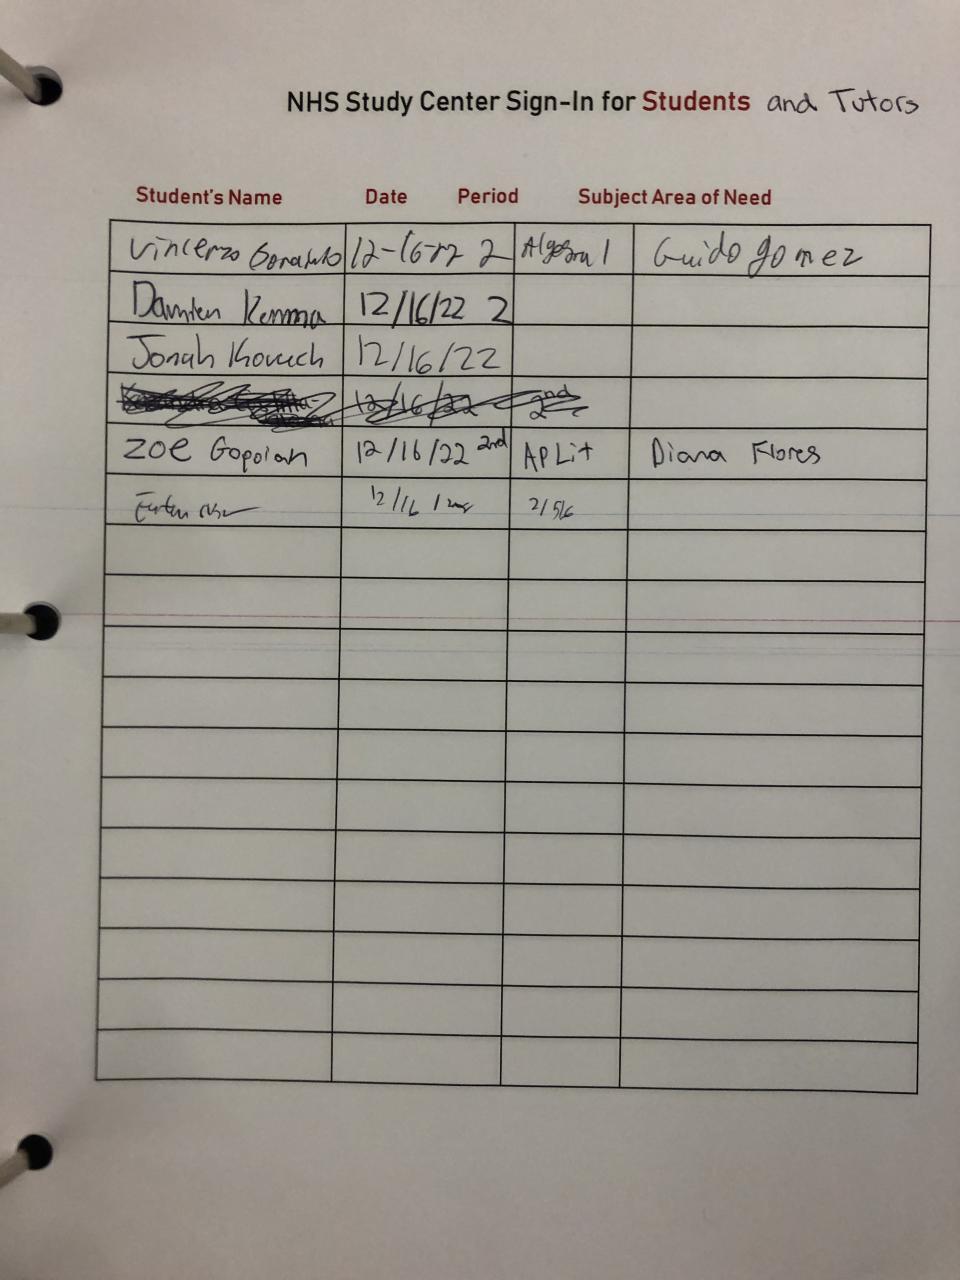 NHS Study Center Sign-In for Students and Tutors
Student's Name Date Period Subject Area of Need
Vincenzo 12-16-22 2 Algebra 1 Guido gomez
Damien 12/16/22 2
Jonah 12/16/22
12/16/22 2nd
Zoe Gopoian 12/16/22 2nd AP Lit Diana Flores
12/16